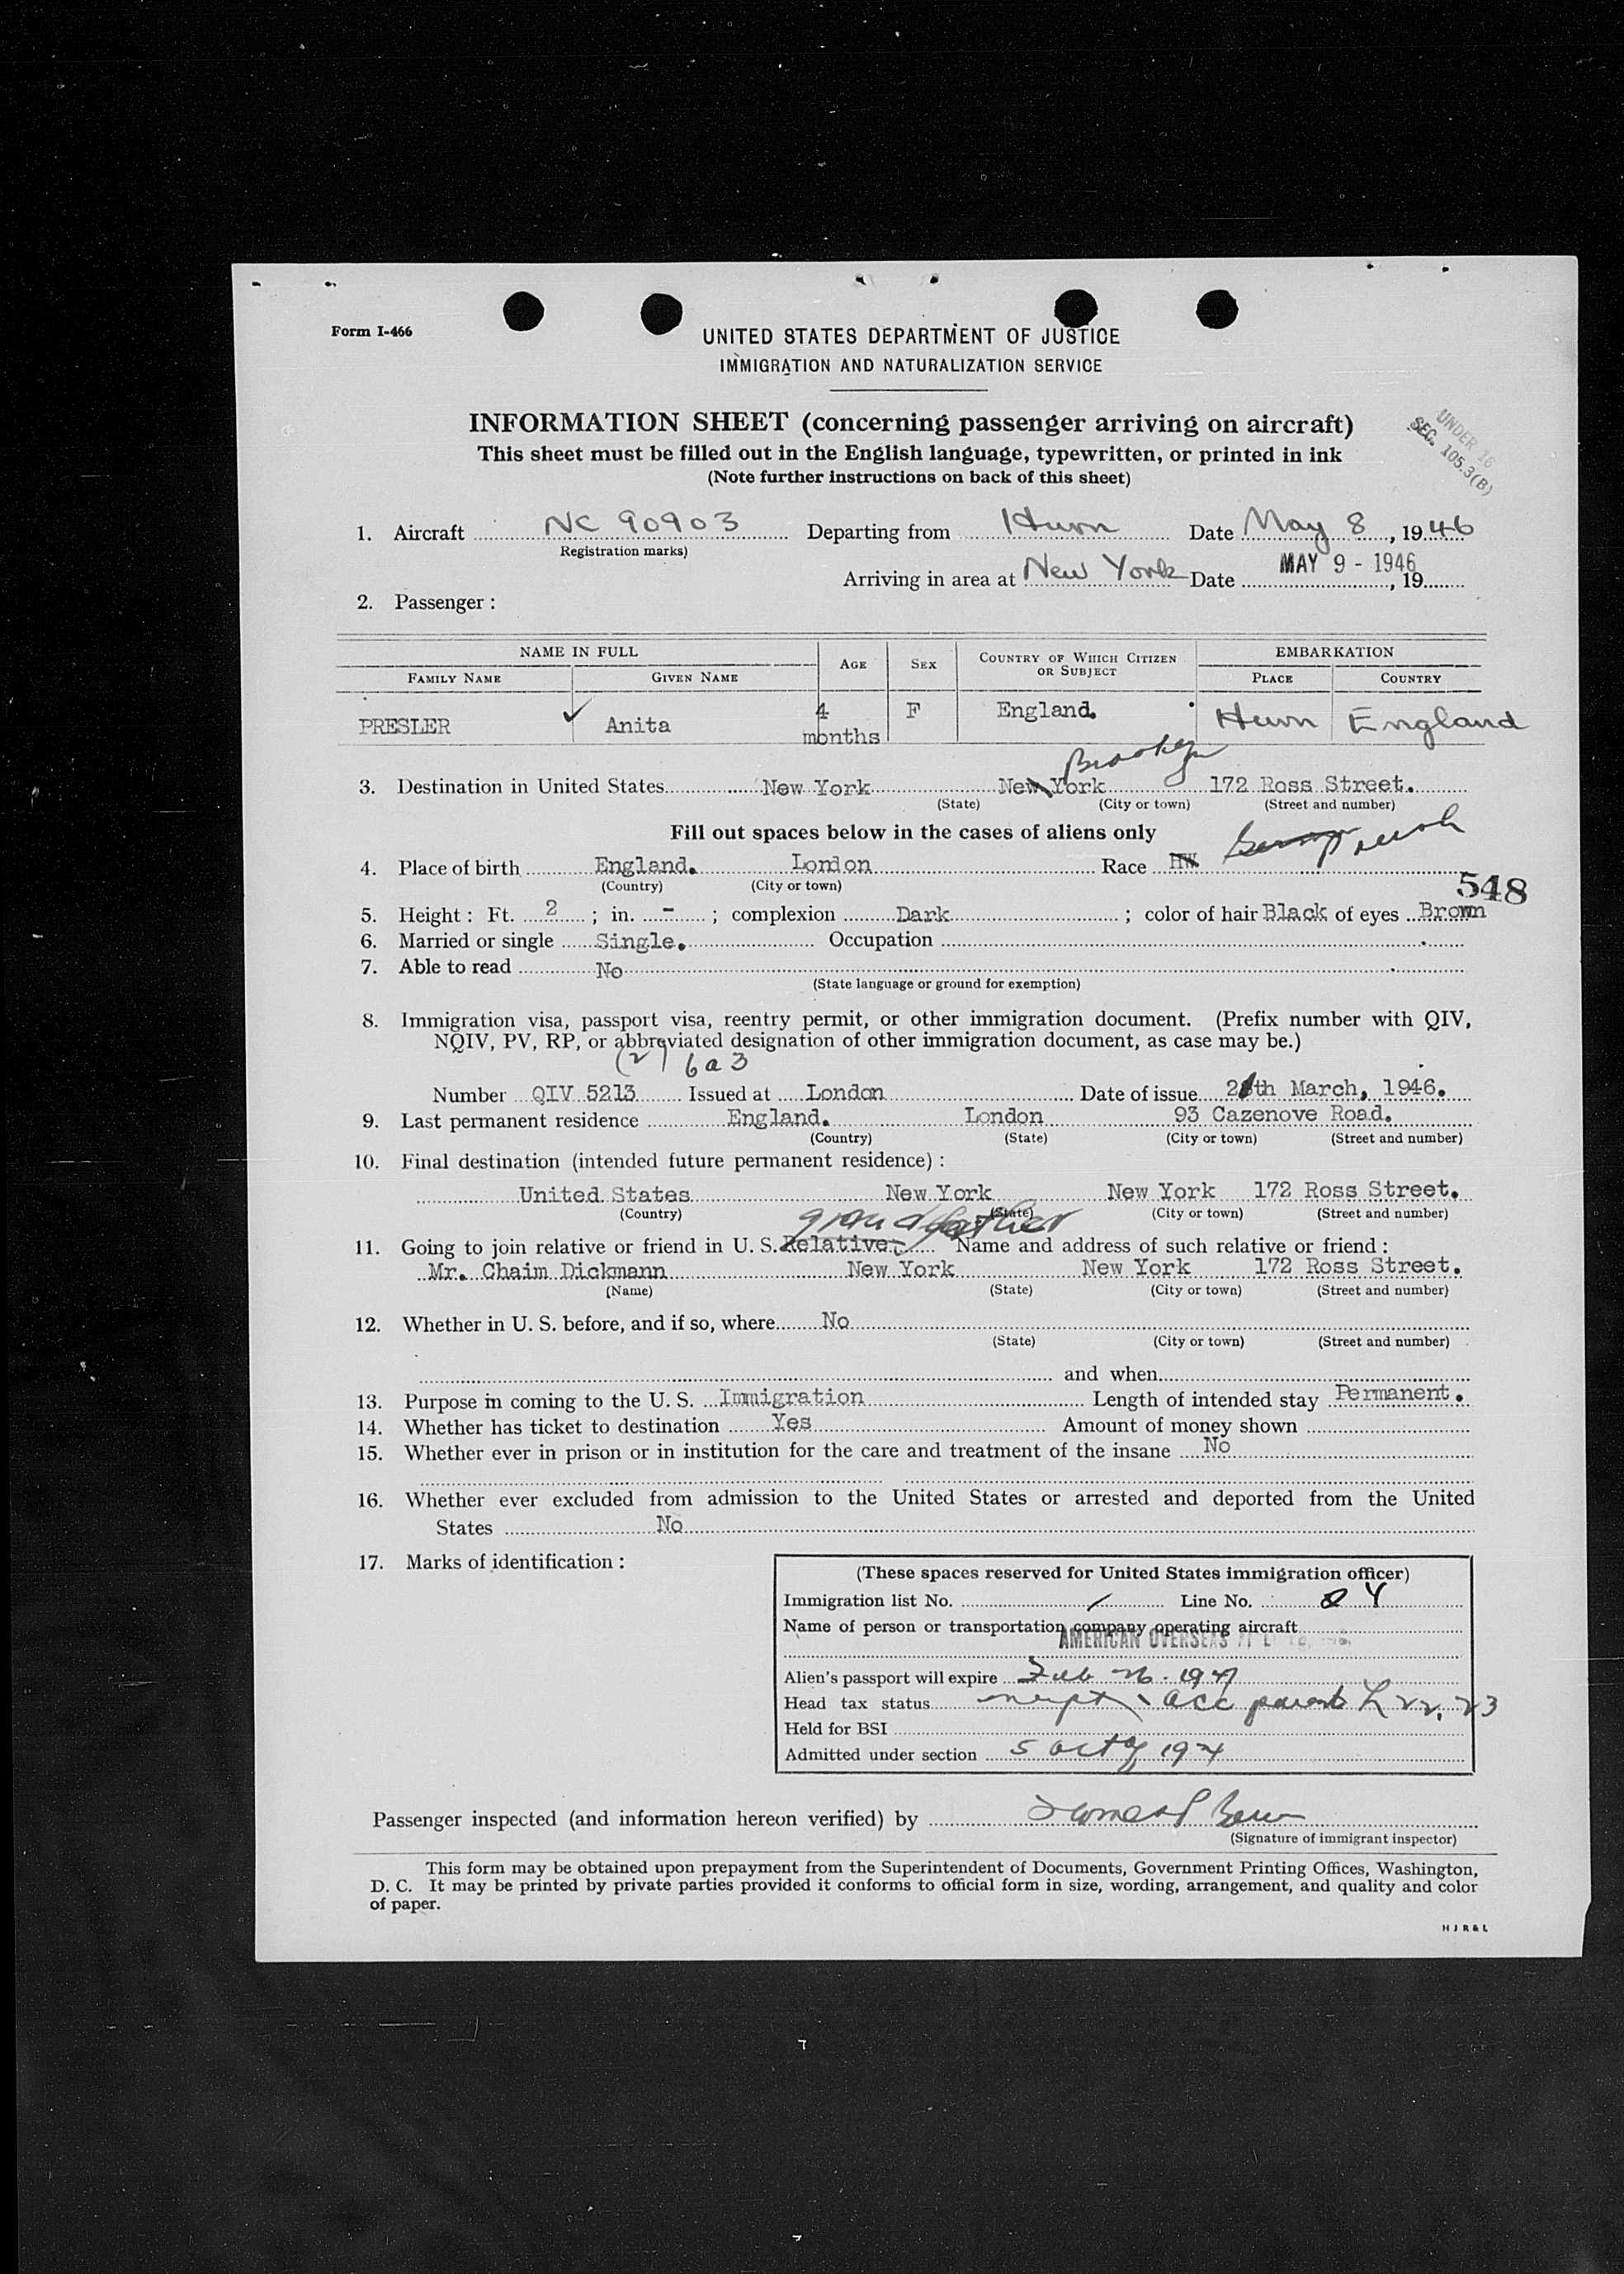 Form I-466
UNITED STATES DEPARTMENT OF JUSTICE
IMMIGRATION AND NATURALIZATION SERVICE
INFORMATION SHEET (concerning passenger arriving on aircraft)
This sheet must be filled out in the English language, typewritten, or printed in ink
(Note further instructions on back of this sheet)
UNDER 16
SEC. 105.3(B)
1. Aircraft NC 90903 Departing from Hurn Date May 8, 1946
Registration marks)
Arriving in area at New York Date MAY 9 - 1946, 19
2. Passenger:
NAME IN FULL AGE SEX COUNTRY OF WHICH CITIZEN OR SUBJECT EMBARKATION
FAMILY NAME GIVEN NAME PLACE COUNTRY
PRESLER ✓ Anita 4 months F England. Hurn England
Brooklyn
3. Destination in United States New York New York 172 Ross Street.
(State) (City or town) (Street and number)
Fill out spaces below in the cases of aliens only
4. Place of birth England. London Race HW
(Country) (City or town)
548
5. Height: Ft. 2; in. -; complexion Dark; color of hair Black of eyes Brown
6. Married or single Single. Occupation
7. Able to read No
(State language or ground for exemption)
8. Immigration visa, passport visa, reentry permit, or other immigration document. (Prefix number with QIV,
NQIV, PV, RP, or abbreviated designation of other immigration document, as case may be.)
(2) 6a3
Number QIV 5213 Issued at London Date of issue th March, 1946.
9. Last permanent residence England. London 93 Cazenove Road.
(Country) (State) (City or town) (Street and number)
10. Final destination (intended future permanent residence):
United States New York New York 172 Ross Street.
(Country) (State) (City or town) (Street and number)
grandfather
11. Going to join relative or friend in U. S. Relative. Name and address of such relative or friend:
Mr. Chaim Dickmann New York New York 172 Ross Street.
(Name) (State) (City or town) (Street and number)
12. Whether in U. S. before, and if so, where No
(State) (City or town) (Street and number)
and when
13. Purpose in coming to the U. S. Immigration Length of intended stay Permanent.
14. Whether has ticket to destination Yes Amount of money shown
15. Whether ever in prison or in institution for the care and treatment of the insane No
16. Whether ever excluded from admission to the United States or arrested and deported from the United
States No
17. Marks of identification:
(These spaces reserved for United States immigration officer)
Immigration list No. 1 Line No. 24
Name of person or transportation company operating aircraft
AMERICAN OVERSEAS
Alien's passport will expire Feb 26 - 1947
Head tax status acc parents L 22, 23
Held for BSI
Admitted under section 5 act of 1924
Passenger inspected (and information hereon verified) by
(Signature of immigrant inspector)
This form may be obtained upon prepayment from the Superintendent of Documents, Government Printing Offices, Washington,
D. C. It may be printed by private parties provided it conforms to official form in size, wording, arrangement, and quality and color
of paper.
H J R & L